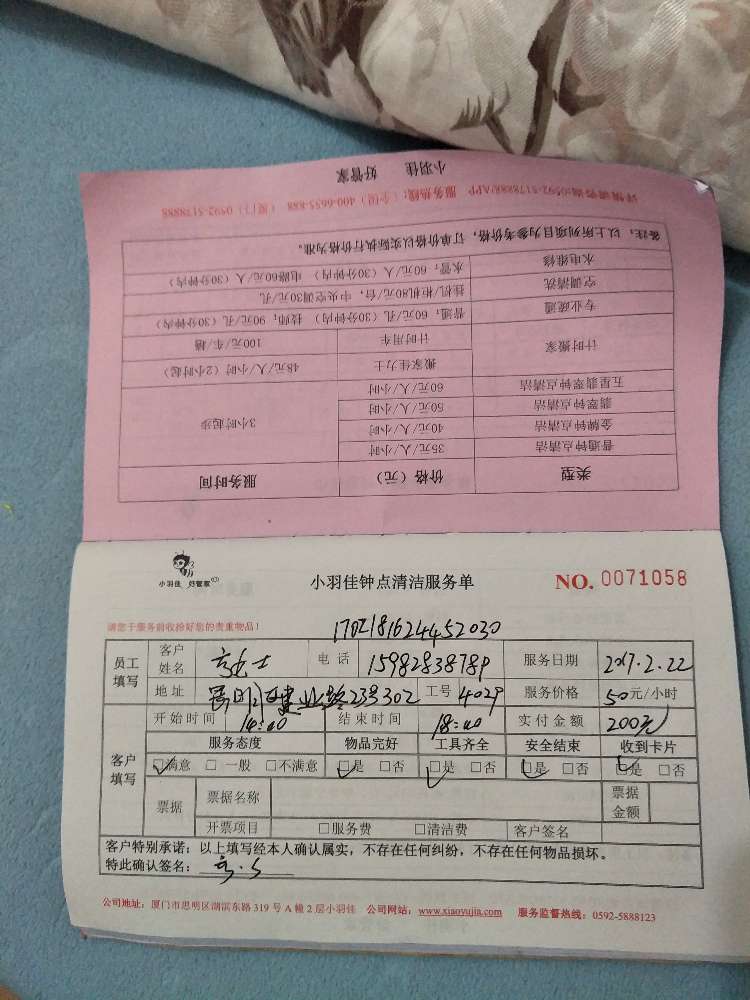 小羽佳 好管家
详情请咨询:0592-5178888/APP 服务热线:(全国)400-6655-888 (厦门)0592-5178888
备注:以上所列项目为参考价格,订单价格以实际执行价格为准。
类型 价格(元) 服务时间
普通钟点清洁 35元/人/小时 3小时起步
金牌钟点清洁 40元/人/小时
翡翠钟点清洁 50元/人/小时
五星翡翠钟点清洁 60元/人/小时
计时搬家 搬家佳力士 48元/人/小时(2小时起)
计时用车 100元/车/趟
专业疏通 普通:60元/孔(30分钟内) 技师:90元/孔(30分钟内)
空调清洗 挂机/柜机80元/台,中央空调30元/孔
水电维修 水管:60元/人(30分钟内) 电路60元/人(30分钟内)
小羽佳 好管家
小羽佳钟点清洁服务单
NO. 0071058
请您于服务前收拾好您的贵重物品!
员工填写 客户姓名 电话 服务日期 2017.2.22
地址 工号 4029 服务价格 50元/小时
开始时间 14:00 结束时间 18:00 实付金额 200元
客户填写 服务态度 物品完好 工具齐全 安全结束 收到卡片
☑满意 □一般 □不满意 ☑是 □否 ☑是 □否 ☑是 □否 ☑是 □否
票据 票据名称 票据金额
开票项目 □服务费 □清洁费 客户签名
客户特别承诺:以上填写经本人确认属实,不存在任何纠纷,不存在任何物品损坏。
特此确认签名:
公司地址:厦门市思明区湖滨东路319号A幢2层小羽佳 公司网站:www.xiaoyujia.com 服务监督热线:0592-5888123